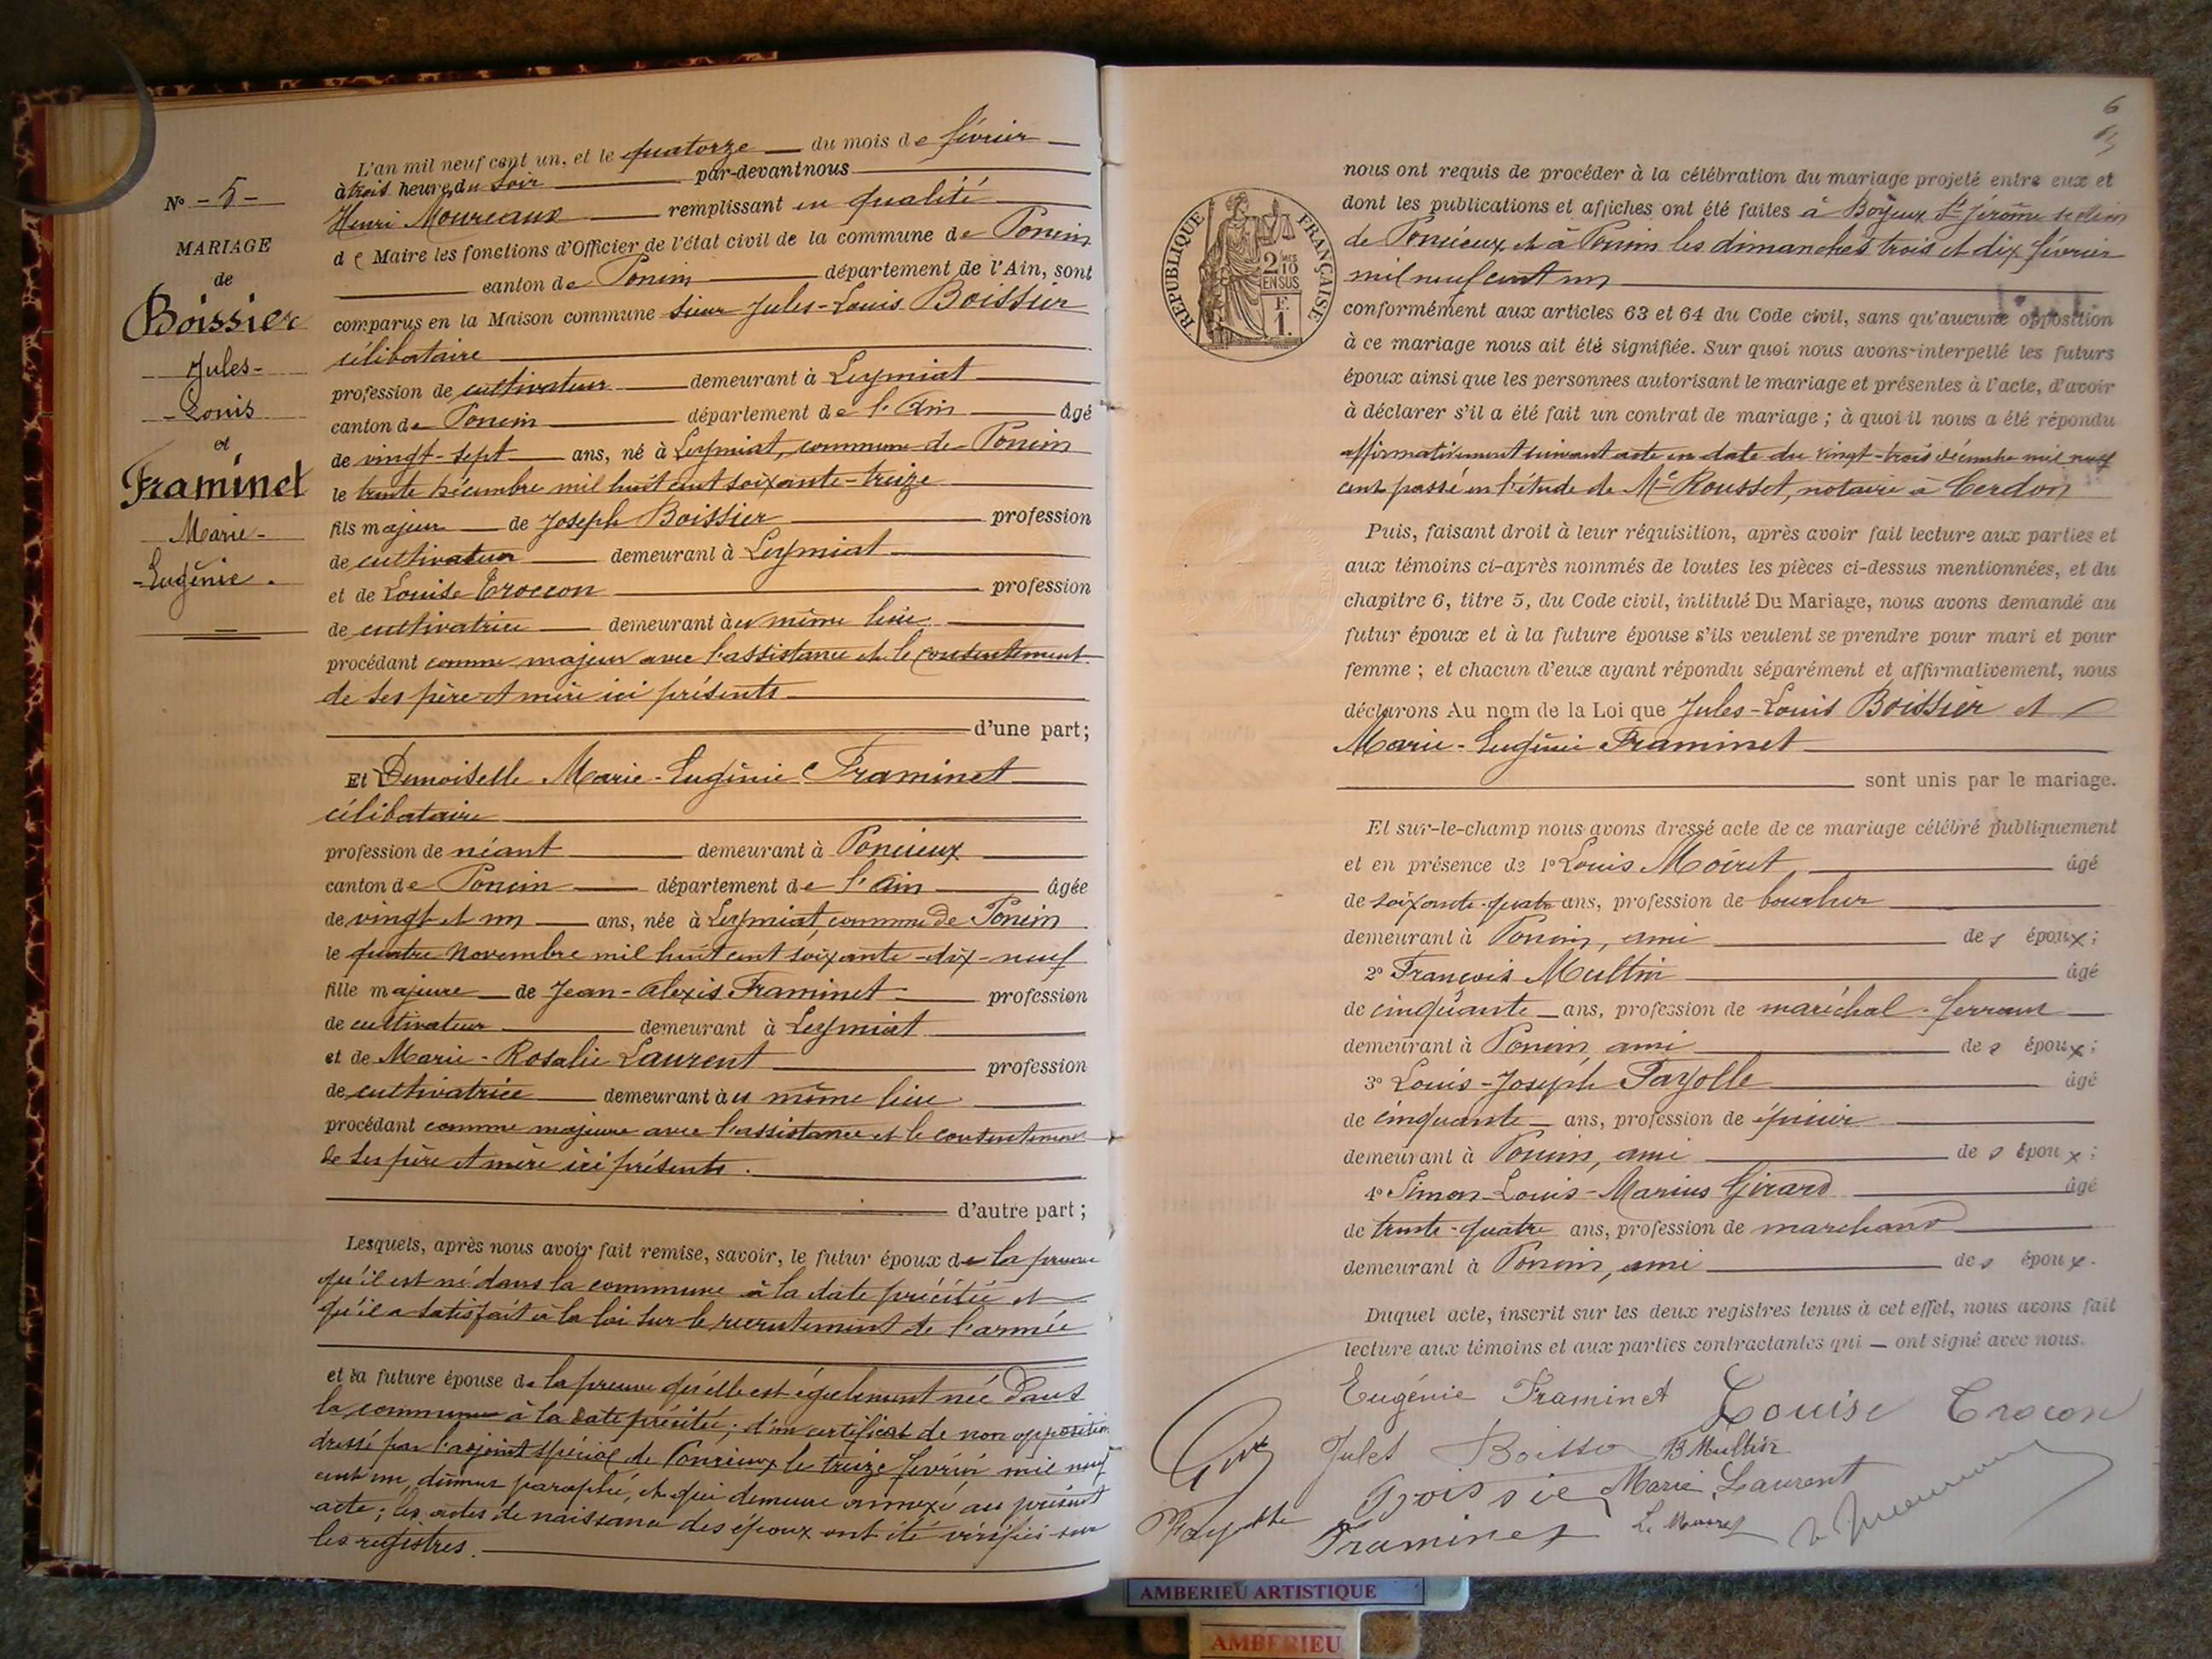 N° - 5 -
MARIAGE
de
Boissier
Jules-
- Louis
et
Framinet
Marie-
- Eugénie.
L'an mil neuf cent un, et le quatorze du mois de février
à trois heures du soir par-devant nous
Henri Moureaux remplissant en qualité
de Maire les fonctions d'Officier de l'état civil de la commune de Poncin
canton de Poncin département de l'Ain, sont
comparus en la Maison commune sieur Jules-Louis Boissier
célibataire
profession de cultivateur demeurant à Leymiat
canton de Poncin département de l'Ain âgé
de vingt-sept ans, né à Leymiat, commune de Poncin
le trente Décembre mil huit cent soixante-treize
fils majeur de Joseph Boissier profession
de cultivateur demeurant à Leymiat
et de Louise Troccon profession
de cultivatrice demeurant au même lieu
procédant comme majeur avec l'assistance et le consentement
de ses père et mère ici présents
d'une part;
Et Demoiselle Marie-Eugénie Framinet
célibataire
profession de néant demeurant à Poncieux
canton de Poncin département de l'Ain âgée
de vingt et un ans, née à Leymiat, commune de Poncin
le quatre Novembre mil huit cent soixante-dix-neuf
fille majeure de Jean-Alexis Framinet profession
de cultivateur demeurant à Leymiat
et de Marie-Rosalie Laurent profession
de cultivatrice demeurant au même lieu
procédant comme majeure avec l'assistance et le consentement
de ses père et mère ici présents.
d'autre part;
Lesquels, après nous avoir fait remise, savoir, le futur époux de la preuve
qu'il est né dans la commune à la date précitée et
qu'il a satisfait à la loi sur le recrutement de l'armée
et la future épouse de la preuve qu'elle est également née dans
la commune à la date précitée; d'un certificat de non opposition
dressé par l'adjoint spécial de Poncieux le treize février mil neuf
cent un, dûment paraphé, et qui demeure annexé au présent
acte; les actes de naissance des époux ont été vérifiés sur
les registres.
6
RÉPUBLIQUE FRANÇAISE
2/10
EN SUS
F.
1.
nous ont requis de procéder à la célébration du mariage projeté entre eux et
dont les publications et affiches ont été faites à Boyeux St Jérôme section
de Poncieux et à Poncin les dimanches trois et dix février
mil neuf cent un
conformément aux articles 63 et 64 du Code civil, sans qu'aucune opposition
à ce mariage nous ait été signifiée. Sur quoi nous avons interpellé les futurs
époux ainsi que les personnes autorisant le mariage et présentes à l'acte, d'avoir
à déclarer s'il a été fait un contrat de mariage; à quoi il nous a été répondu
affirmativement suivant acte en date du vingt-trois décembre mil neuf
cent passé en l'étude de Me Rousset, notaire à Cerdon
Puis, faisant droit à leur réquisition, après avoir fait lecture aux parties et
aux témoins ci-après nommés de toutes les pièces ci-dessus mentionnées, et du
chapitre 6, titre 5, du Code civil, intitulé Du Mariage, nous avons demandé au
futur époux et à la future épouse s'ils veulent se prendre pour mari et pour
femme; et chacun d'eux ayant répondu séparément et affirmativement, nous
déclarons Au nom de la Loi que Jules-Louis Boissier et
Marie-Eugénie Framinet
sont unis par le mariage.
Et sur-le-champ nous avons dressé acte de ce mariage célébré publiquement
et en présence de 1° Louis Moiret âgé
de soixante-quatre ans, profession de boucher
demeurant à Poncin, ami des époux;
2° François Multin âgé
de cinquante ans, profession de maréchal-ferrant
demeurant à Poncin ami des époux;
3° Louis-Joseph Fayolle âgé
de cinquante ans, profession de épicier
demeurant à Poncin, ami des époux;
4° Simon-Louis-Marius Girard âgé
de trente-quatre ans, profession de marchand
demeurant à Poncin, ami des époux.
Duquel acte, inscrit sur les deux registres tenus à cet effet, nous avons fait
lecture aux témoins et aux parties contractantes qui ont signé avec nous.
Eugénie Framinet Louise Trocon
Jules B Multin
Boissier Marie Laurent
Fayolle Framinet
AMBERIEU ARTISTIQUE
AMBERIEU